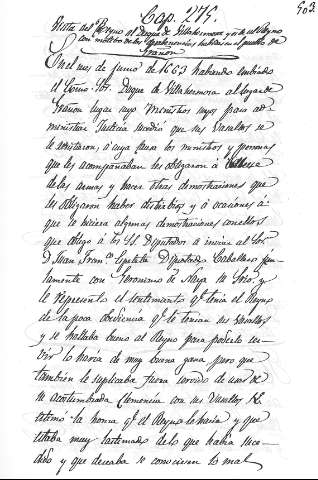 503.
Cap. 275.
Visita del Reyno al Duque de Villahermosa y de el Reyno
con motivo de las habidas en el pueblo de
En el mes de junio de 1663 habiendo embiado
el Exmo. Sor. Duque de Villahermosa al lugar de
lugar suyo Ministros suyos para ad-
ministrar Justicia sucedió que sus vasallos se
le a cuya causa los ministros y personas
que les acompañaban les obligaron á
de las armas y hacer otras demostraciones que
les obligaron haber disturbios y á ocasiones á
que se hiciera algunas demostraciones con ellos
que obligó a los SS. Diputados a inviar al Sor.
D. Juan Franco. Diputado Caballero jun-
tamente con Geronimo de Naya su Srio. y
le representó el sentimiento qe. tenia el Reyno
de la poca obediencia qe. le tenian sus vasallos
y se hallaba bueno el Reyno para poderle ser-
vir lo haria de muy buena gana pero que
tambien le suplicaba fuera servido de usar de
su acostumbrada clemencia con sus vasallos
estimó la honra qe. el Reyno le hacia y que
estaba muy lastimado de lo que habia suce-
dido y que deseaba se conociesen lo mal